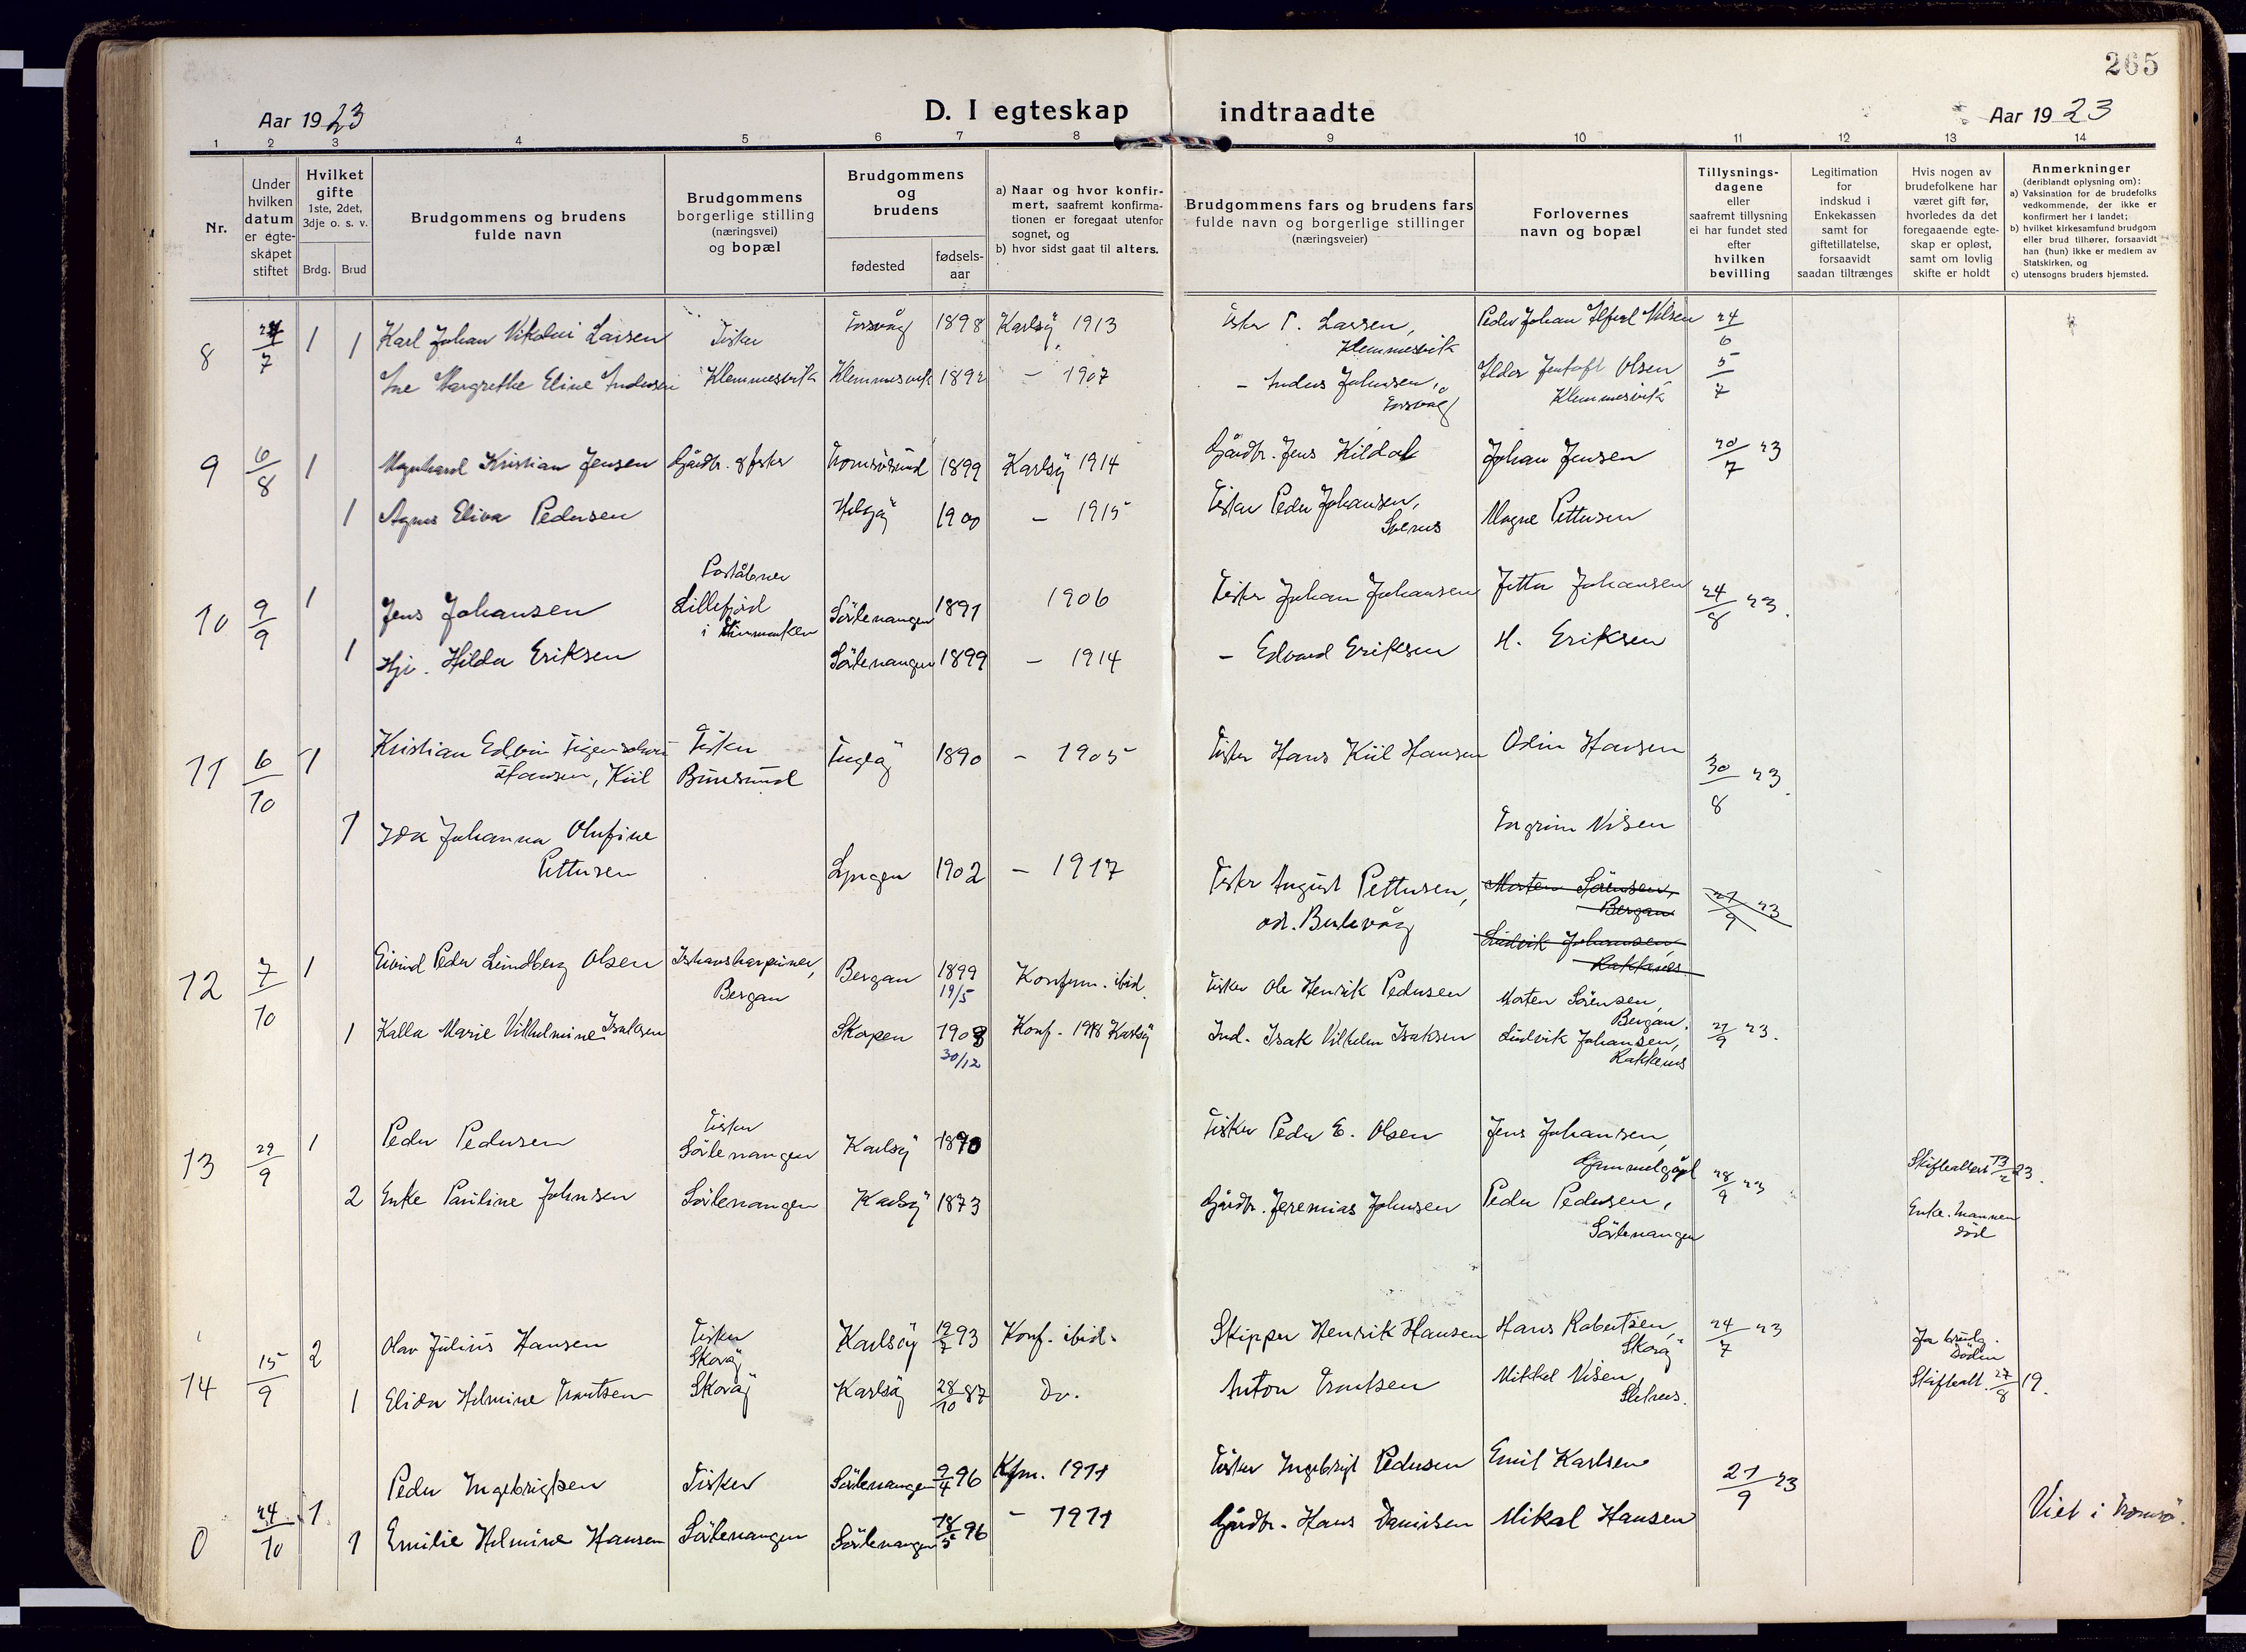 265
Aar 1923
D. I egteskap indtraadte
Aar 1923
1 2 3 4 5 6 7 8 9 10 11 12 13 14
Nr.
Under hvilken datum er egteskapet stiftet
Hvilket gifte 1ste, 2det, 3dje o. s. v.
Brdg. Brud
Brudgommens og brudens fulde navn
Brudgommens borgerlige stilling (næringsvei) og bopæl
Brudgommens og brudens
fødested
fødsels-aar
a) Naar og hvor konfirmert, saafremt konfirmationen er foregaat utenfor sognet, og
b) hvor sidst gaat til alters.
Brudgommens fars og brudens fars fulde navn og borgerlige stillinger (næringsveier)
Forlovernes navn og bopæl
Tillysningsdagene eller saafremt tillysning ei har fundet sted efter hvilken bevilling
Legitimation for indskud i Enkekassen samt for giftetillatelse, forsaavidt saadan tiltrænges
Hvis nogen av brudefolkene har været gift før, hvorledes da det foregaaende egteskap er opløst, samt om lovlig skifte er holdt
Anmerkninger
(deriblandt oplysning om):
a) Vaksination for de brudefolks vedkommende, der ikke er konfirmert her i landet;
b) hvilket kirkesamfund brudgom eller brud tilhører, forsaavidt han (hun) ikke er medlem av Statskirken, og
c) utensogns bruders hjemsted.
8 7 1 Karl Johan Nikolai Larsen Fisker Torsvåg 1898 Karlsö 1913 Fisker P. Larsen, Klemmesvik Peder Johan Alfred Nilsen 24/6
1 Ane Margrethe Eline Andersen Klemmesvik Klemmesvik 1892 - 1907 - Anders Johansen, Torsvåg Ildor Jentoft Olsen Klemmesvik 5/7
9 6/8 1 Magnhard Kristian Jensen Gårdbr. & fisker Tromsösund 1899 Karlsö 1914 Gårdbr. Jens Kildal Johan Jensen 20/7 23
1 Agnes Eliva Pedersen Helgöy 1900 - 1915 Fisker Peder Johansen, Magne Pettersen
10 9/9 1 Jens Johansen Poståbner Lillefjord i Finmarken Sörlenangen 1891 1906 Fisker Johan Johansen Johansen 24/8 23.
1 Hj. Hilda Eriksen Sörlenangen 1899 - 1914 - Edvard Eriksen H. Eriksen
11 6/10 1 Kristian Edvin Figenschou Hansen, Kiil Fisker Burösund Fuglöy 1890 - 1905 Fisker Hans Kiil Hansen Odin Hansen 30/8 23.
1 Ida Johanna Olufine Pettersen Lyngen 1902 - 1917 Fisker August Pettersen, Torgrim Nilsen
Morten Sörensen, Bergan 21/9 23
Ludvik Johansen, Rakkenes
12 7/10 1 Eivind Peder Lundberg Olsen Ishavsharpuner, Bergan Bergan 1899 19/5 Konfirm. ibid. Fisker Ole Henrik Pedersen Morten Sörensen, Bergan.
1 Kalla Marie Vilhelmine Isaksen Skogen 1903 30/12 Konf. 1918 Karlsö Ind. Isak Vilhelm Isaksen Ludvik Johansen, Rakkenes 21/9 23.
13 29/9 1 Peder Pedersen Fisker Sörlenangen Karlsö 1870 Fisker Peder E. Olsen Jens Johansen, Gammelgård 28/9 23
2 Enke Pauline Johnsen Sörlenangen Karlsö 1873 Gårdbr. Jeremias Johnsen Peder Pedersen, Sörlenangen Skifteattest 13/2 23. Enke. Mannen död
14 15/9 2 Olav Julius Hansen Fisker Skorøy Karlsöy 12/7 93 Konf. ibid. Skipper Henrik Hansen Hans Robertsen, Skorøy 24/7 23
1 Elida Helmine Trontsen Skorøy Karlsöy 28/10 87 Do. Anton Trontsen Mikkel Nilsen, Skifteatt. 27/8 19.
0 24/10 1 Peder Ingebrigtsen Fisker Sörlenangen 9/4 96 Kfm. 1911 Fisker Ingebrigt Pedersen Emil Karlsen 21/9 23
1 Emilie Helmine Hansen Sörlenangen Sörlenangen 18/5 96 - 1911 Gårdbr. Hans Danielsen Mikal Hansen Viet i Tromsö.